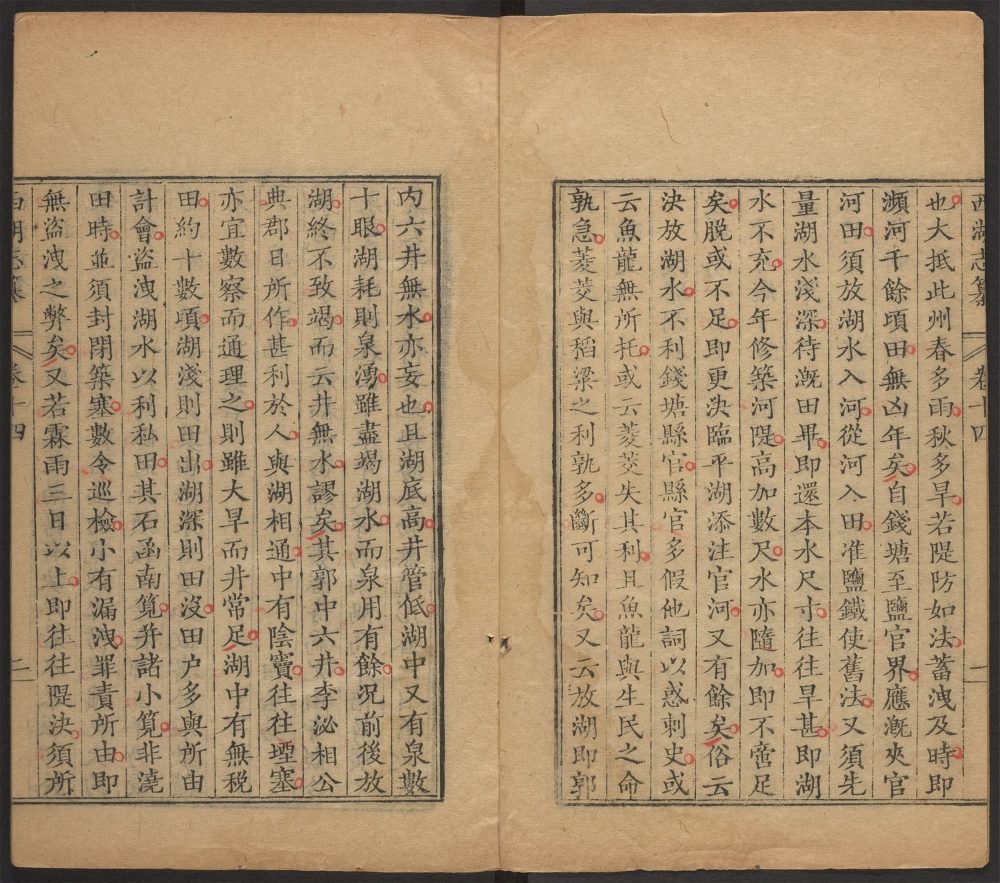 西湖志纂 卷十四 一
也大抵此州春多雨秋多旱若隄防如法蓄洩及時即
瀕河千餘頃田無凶年矣自錢塘至鹽官界應漑夾官
河田須放湖水入河從河入田准鹽鐵使舊法又須先
量湖水淺深待漑田畢即還本水尺寸往往旱甚即湖
水不充今年修築河隄高加數尺水亦隨加即不啻足
矣脱或不足即更決臨平湖添注官河又有餘矣俗云
決放湖水不利錢塘縣官縣官多假他詞以惑刺史或
云魚龍無所托或云菱茭失其利且魚龍與生民之命
孰急菱茭與稻粱之利孰多斷可知矣又云放湖即郭
内六井無水亦妄也且湖底高井管低湖中又有泉數
十眼湖耗則泉湧雖盡竭湖水而泉用有餘况前後放
湖終不致竭而云井無水謬矣其郭中六井李泌相公
典郡日所作甚利於人與湖相通中有陰竇往往堙塞
亦宜數察而通理之則雖大旱而井常足湖中有無税
田約十數頃湖淺則田出湖深則田沒田户多與所由
計會盜洩湖水以利私田其石函南筧并諸小筧非澆
田時並須封閉築塞數令巡檢小有漏洩罪責所由即
無盜洩之弊矣又若霖雨三日以上即往往隄決須所
西湖志纂 卷十四 二